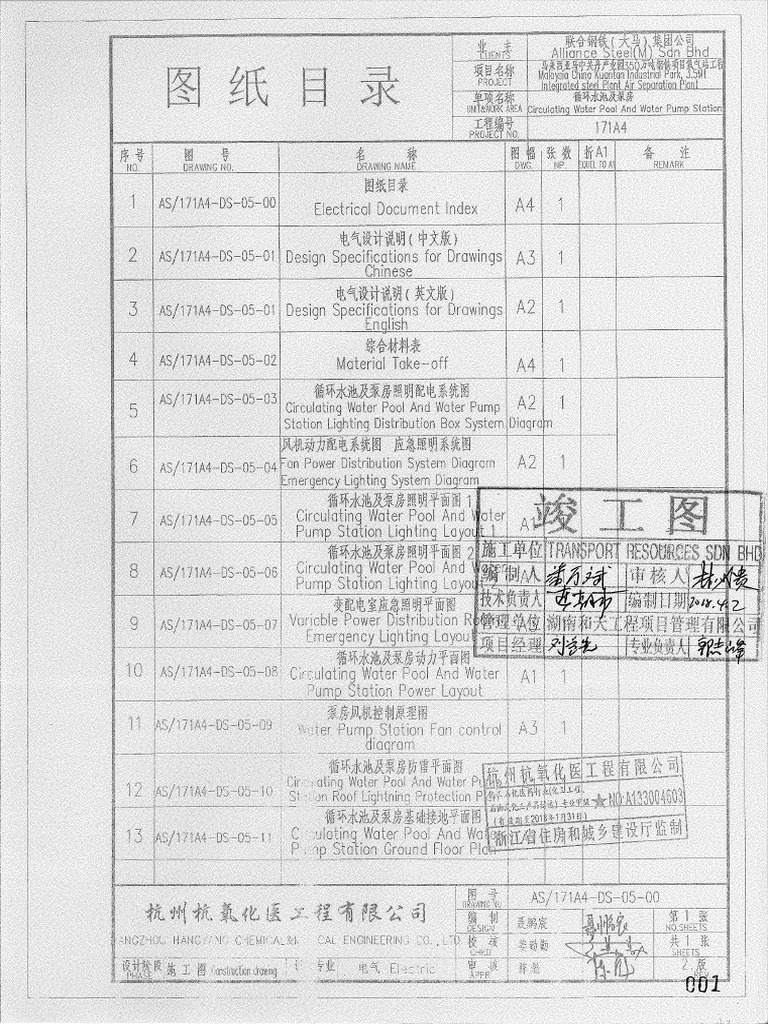 图纸目录
业主 CLIENTS
联合钢铁(大马)集团公司
Alliance Steel(M) Sdn Bhd
项目名称 PROJECT
马来西亚马中关丹产业园350万吨钢铁项目氧气站工程
Malaysia China Kuantan Industrial Park, 3.5MT
Integrated steel Plant Air Separation Plant
单项名称 UNIT&WORK AREA
循环水池及泵房
Circulating Water Pool And Water Pump Station
工程编号 PROJECT NO.
171A4
序号 图号 名称 图幅 张数 折A1 备注
NO. DRAWING NO. DRAWING NAME DWG. NP. EQUEL TO A1 REMARK
图纸目录
1 AS/171A4-DS-05-00 Electrical Document Index A4 1
电气设计说明(中文版)
2 AS/171A4-DS-05-01 Design Specifications for Drawings A3 1
Chinese
电气设计说明(英文版)
3 AS/171A4-DS-05-01 Design Specifications for Drawings A2 1
English
综合材料表
4 AS/171A4-DS-05-02 Material Take-off A4 1
循环水池及泵房照明配电系统图
5 AS/171A4-DS-05-03 Circulating Water Pool And Water Pump A2 1
Station Lighting Distribution Box System Diagram
风机动力配电系统图 应急照明系统图
6 AS/171A4-DS-05-04 Fan Power Distribution System Diagram A2 1
Emergency Lighting System Diagram
循环水池及泵房照明平面图 1
7 AS/171A4-DS-05-05 Circulating Water Pool And Water A1
Pump Station Lighting Layout 1
循环水池及泵房照明平面图 2
8 AS/171A4-DS-05-06 Circulating Water Pool And
Pump Station Lighting Layout
变配电室应急照明平面图
9 AS/171A4-DS-05-07 Variable Power Distribution
Emergency Lighting Layout
循环水池及泵房动力平面图
10 AS/171A4-DS-05-08 Circulating Water Pool And Water A1 1
Pump Station Power Layout
泵房风机控制原理图
11 AS/171A4-DS-05-09 Water Pump Station Fan control A3 1
diagram
循环水池及泵房防雷平面图
12 AS/171A4-DS-05-10 Circulating Water Pool And Water
Station Roof Lightning Protection
循环水池及泵房基础接地平面图
13 AS/171A4-DS-05-11 Circulating Water Pool And Water
Pump Station Ground Floor Plan
竣工图
施工单位 TRANSPORT RESOURCES SDN BHD
编制人 审核人
技术负责人 编制日期 2018.4.2
管理单位 湖南和天工程项目管理有限公司
项目经理 专业负责人
杭州杭氧化医工程有限公司
NO:A133004603
(有效期至2018年1月31日)
浙江省住房和城乡建设厅监制
杭州杭氧化医工程有限公司
HANGZHOU HANGYANG CHEMICAL& MEDICAL ENGINEERING CO.,LTD
设计阶段 PHASE 施工图 Construction drawing 专业 电气 Electric
图号 DRAWING NO AS/171A4-DS-05-00
编制 DESIGN 聂鹏宸 第1张 NO.SHEETS
校核 CHKD 娄动勤 共1张 SHEETS
审核 APPR 2 版
001